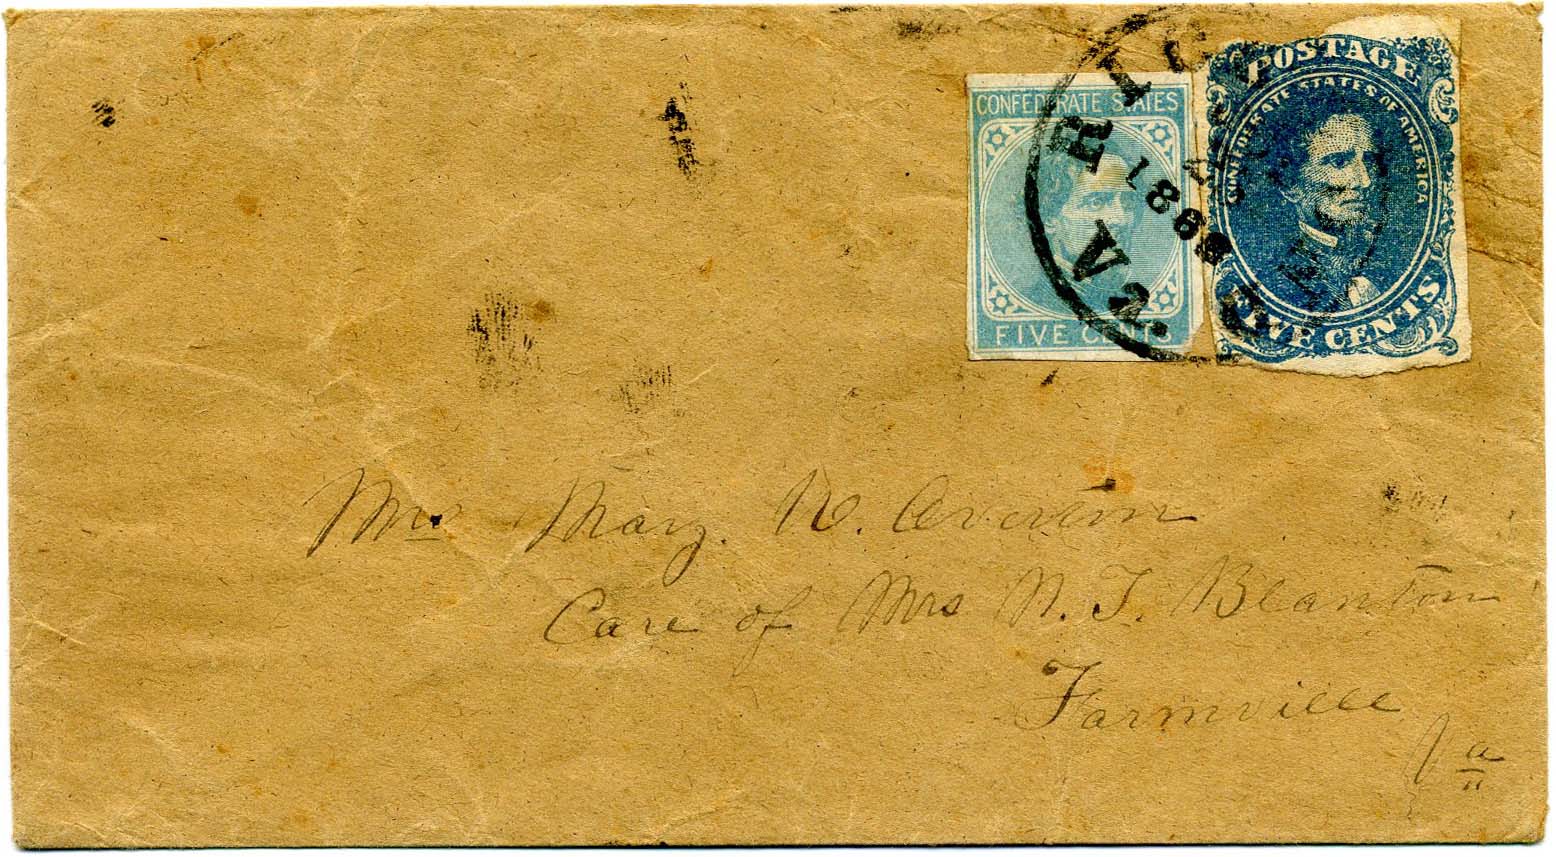 CONFEDERATE STATES
FIVE CENTS
POSTAGE
CONFEDERATE STATES OF AMERICA
FIVE CENTS
RICHMOND
VA.
186
Mrs Mary. N. Averson
Care of Mrs N. T. Blanton
Farmville
Va